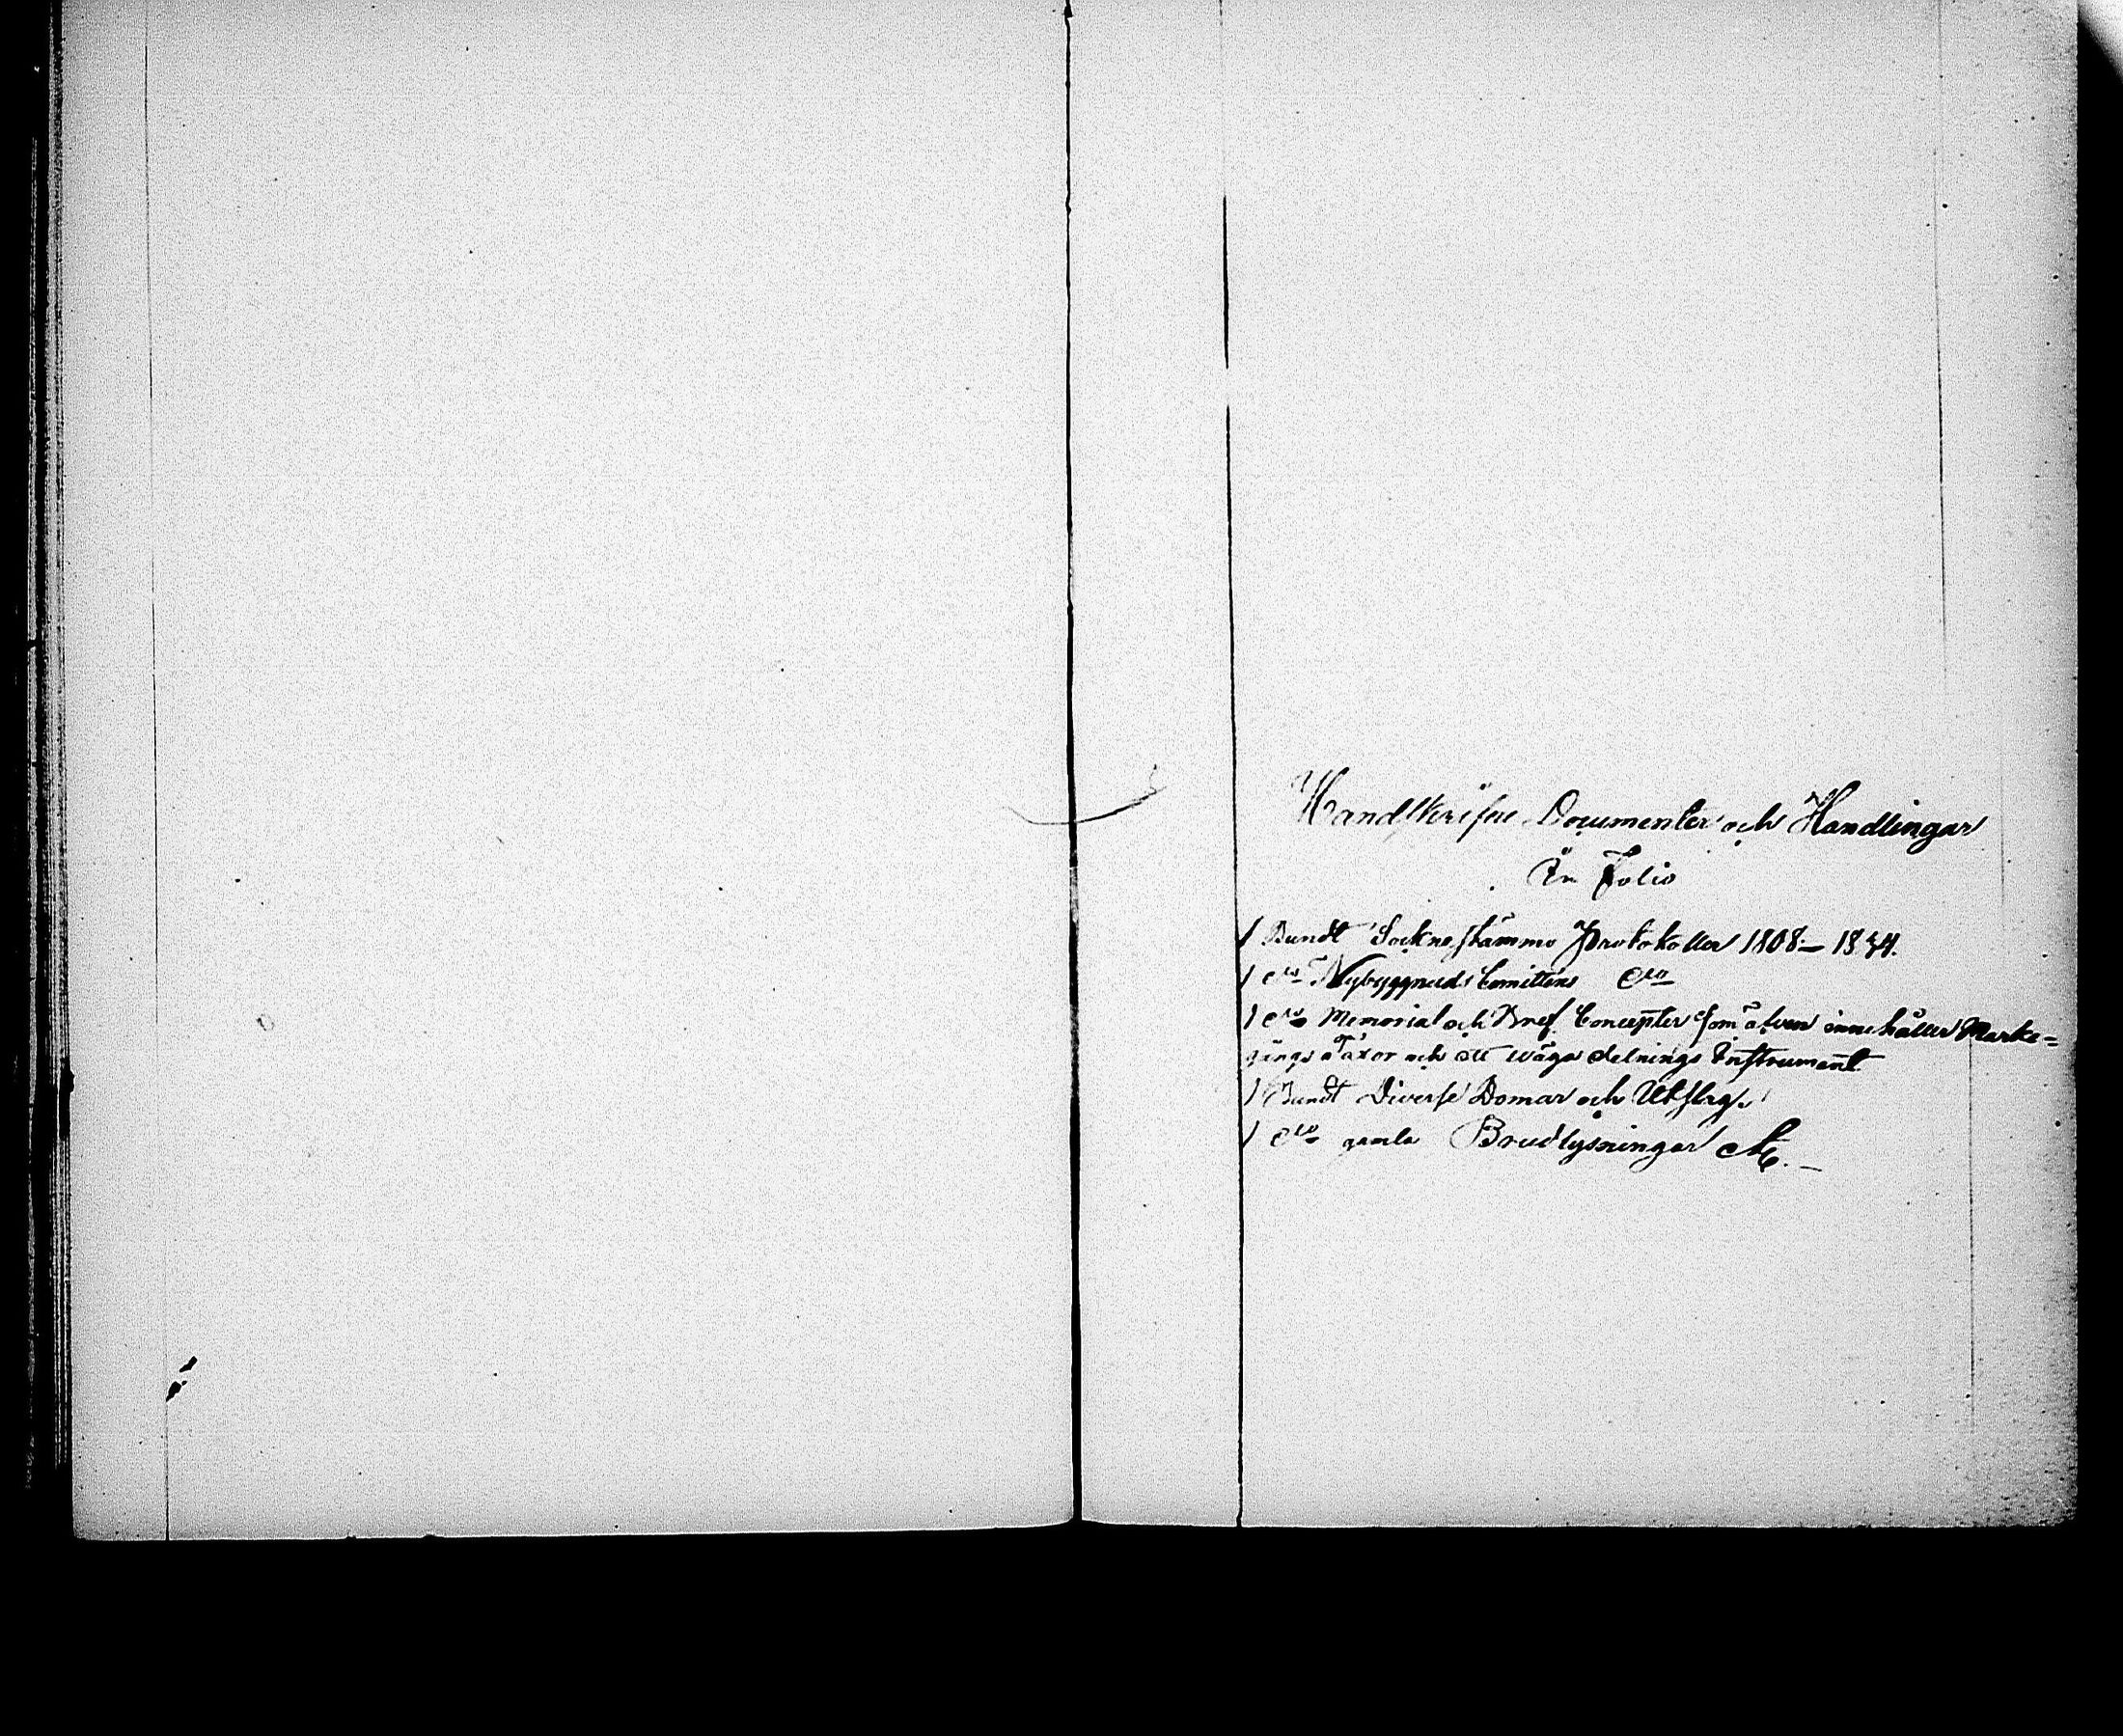 Handskrifne Documenter och Handlingar
in Folio
1 Bundt Sockne stämmo Protokoller 1808 – 1834.
1 do Nybyggnads Comittens do
1 do Memorial och Bref Concepter som äfven innehåller Marke=
gångs taxor och ett wäga delnings Instrument
1 Bundt Diverse Domar och Utslag.
1 do gamla Brudlysningar &c. –